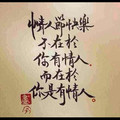 情人節快樂
不在於
你有情人,
而在於
你是有情人.